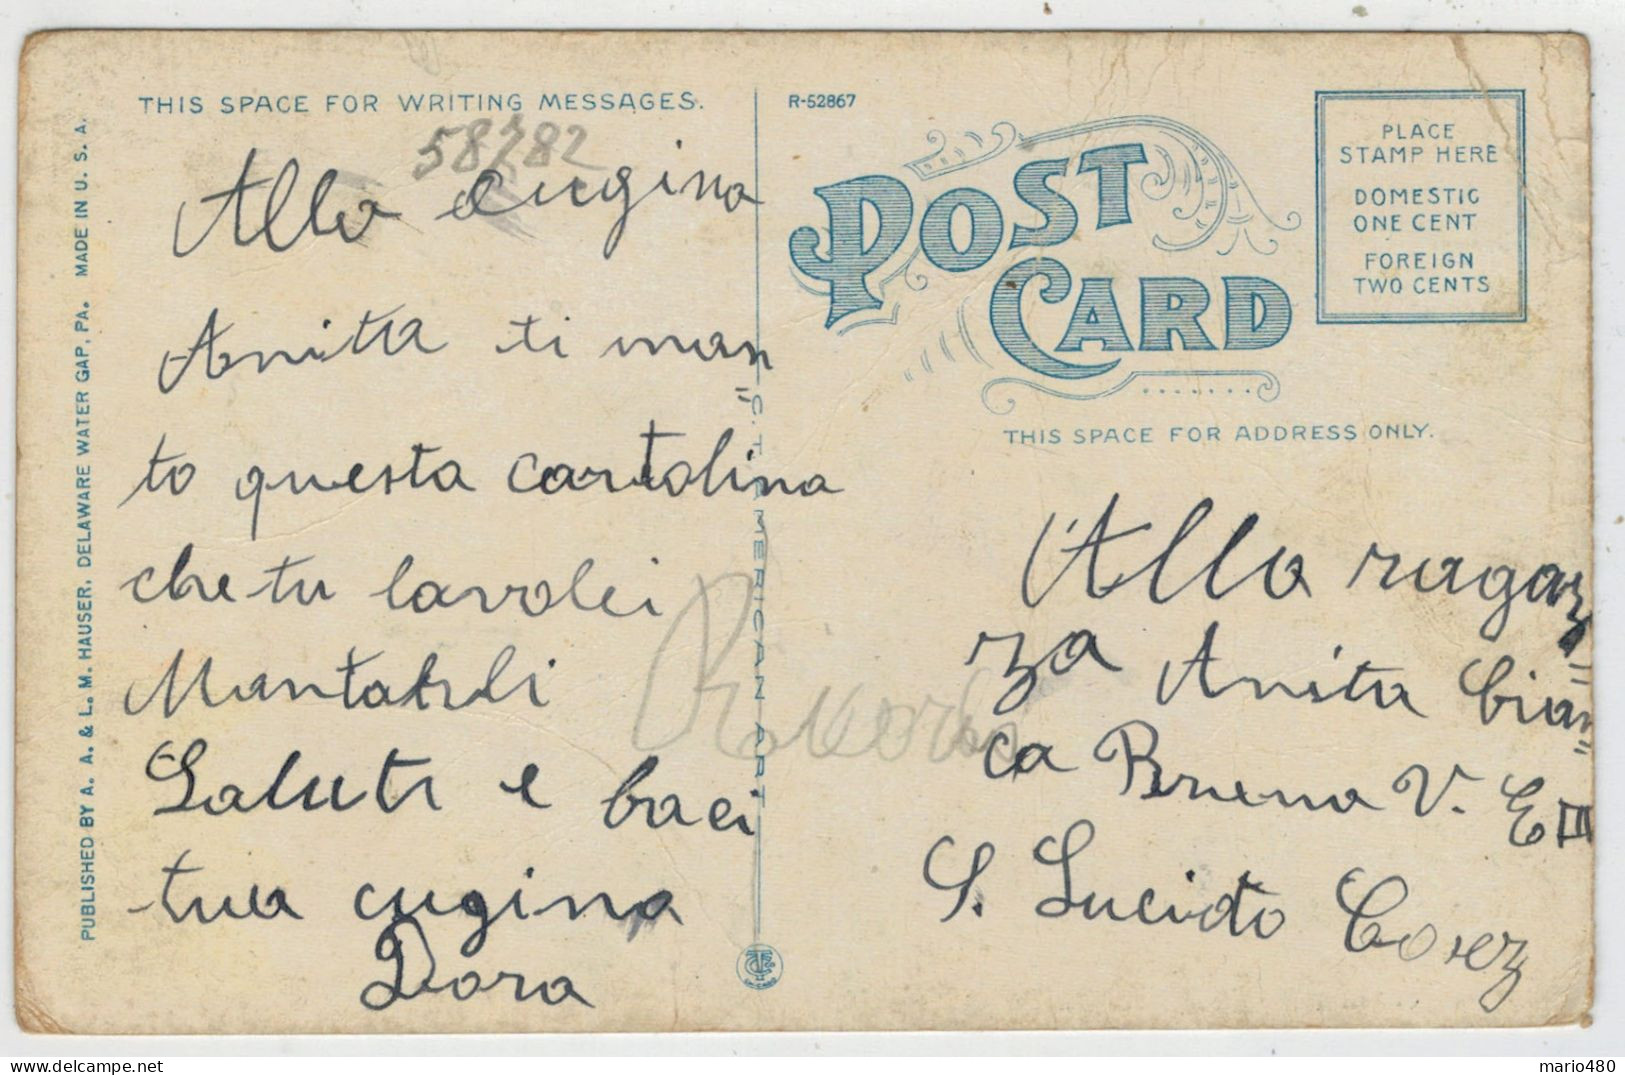 THIS SPACE FOR WRITING MESSAGES.
58782
Alla cugina
Anitta ti man
to questa cartolina
che tu lavolei
Saluti e baci
tua cugina
Dora
PUBLISHED BY A. A. & L. M. HAUSER, DELAWARE WATER GAP, PA. MADE IN U. S. A.
C. T. AMERICAN ART
R-52867
POST
CARD
PLACE
STAMP HERE
DOMESTIC
ONE CENT
FOREIGN
TWO CENTS
THIS SPACE FOR ADDRESS ONLY.
Alla ragaz=
za Anita Cian=
ca Bruna V. E III
S. Lucido Cosez
mario480